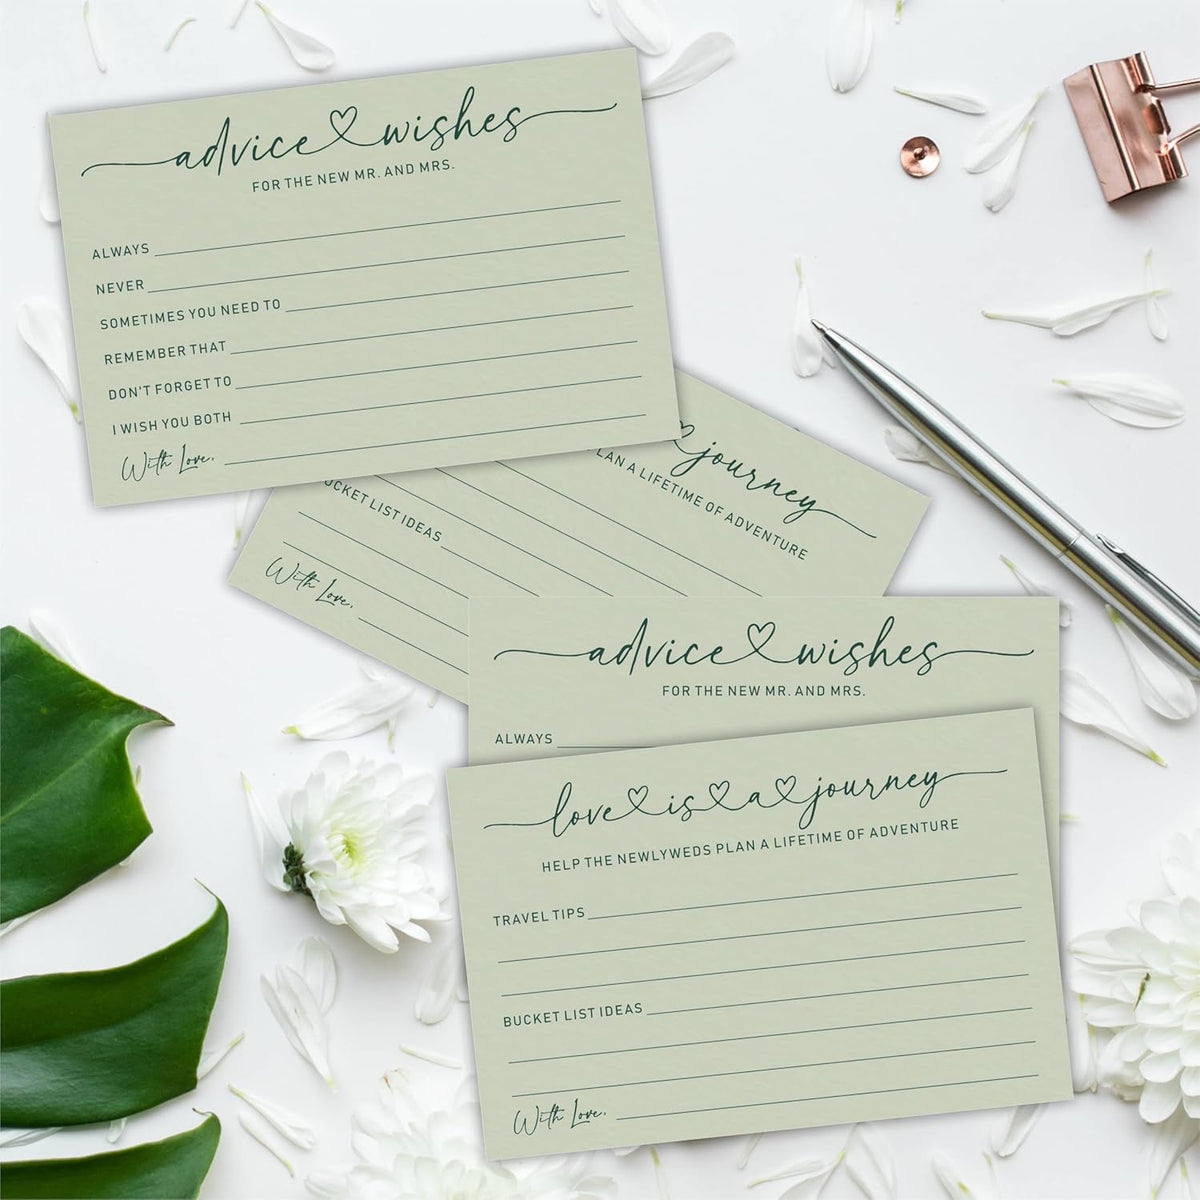 advice wishes
FOR THE NEW MR. AND MRS.
ALWAYS
NEVER
SOMETIMES YOU NEED TO
REMEMBER THAT
DON'T FORGET TO
I WISH YOU BOTH
With Love,
journey
PLAN A LIFETIME OF ADVENTURE
BUCKET LIST IDEAS
With Love,
advice wishes
FOR THE NEW MR. AND MRS.
ALWAYS
love is a journey
HELP THE NEWLYWEDS PLAN A LIFETIME OF ADVENTURE
TRAVEL TIPS
BUCKET LIST IDEAS
With Love,